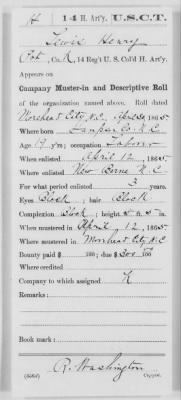 H 14 H. Art'y. U.S.C.T.
Lewis Henry
Pvt., Co. K, 14 Reg't U. S. Col'd H. Art'y.
Appears on
Company Muster-in and Descriptive Roll
of the organization named above. Roll dated
Morehead City, N.C., April 30 1865
Where born Lenoir Co. N.C.
Age 19 y'rs; occupation Laborer
When enlisted April 12, 1865
Where enlisted New Berne N.C.
For what period enlisted 3 years.
Eyes Black; hair Black
Complexion Black; height 5 ft. 5 in.
When mustered in April 12, 1865
Where mustered in Morehead City N.C.
Bounty paid $ 100; due $ 300 100
Where credited
Company to which assigned K
Remarks:
Book mark:
R. Washington
Copyist.